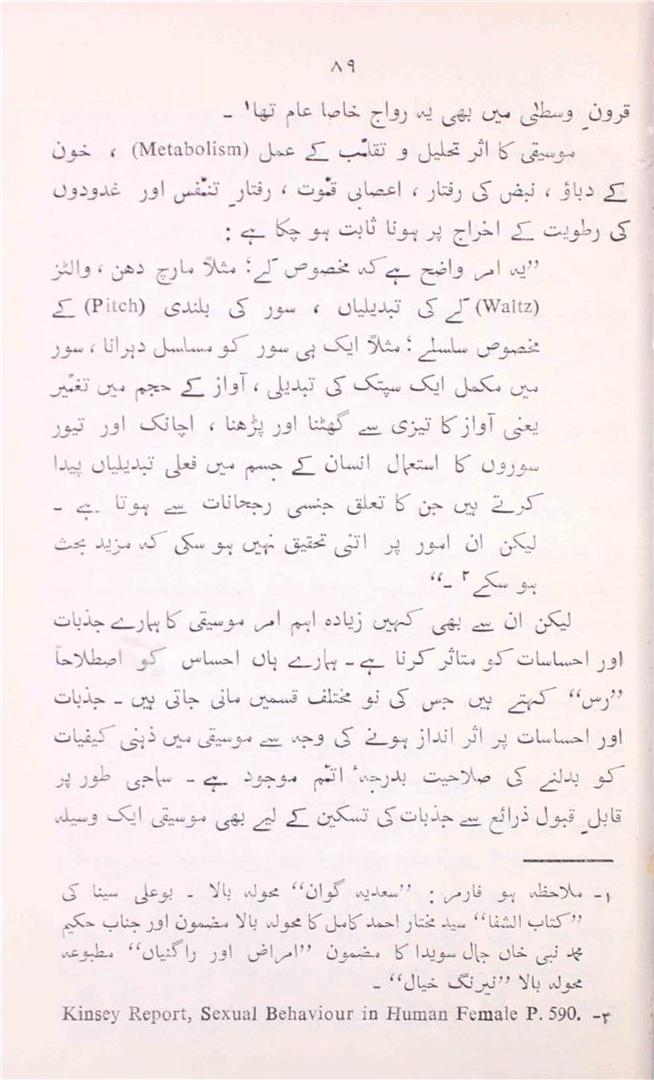 ۸۹
قرونِ وسطیٰ میں بھی یہ رواج خاصا عام تھا۱ ۔
موسیقی کا اثر تحلیل و تقلّب کے عمل (Metabolism) ، خون
کے دباؤ ، نبض کی رفتار ، اعصابی قوّت ، رفتارِ تنفّس اور غدودوں
کی رطوبت کے اخراج پر ہونا ثابت ہو چکا ہے :
”یہ امر واضح ہے کہ مخصوص لَے ؛ مثلاً مارچ دھن ، والٹز
(Waltz) لَے کی تبدیلیاں ، سور کی بلندی (Pitch) کے
مخصوص سلسلے ؛ مثلاً ایک ہی سور کو مسلسل دہرانا ، سور
میں مکمل ایک سپتک کی تبدیلی ، آواز کے حجم میں تغیّر
یعنی آواز کا تیزی سے گھٹنا اور پڑھنا ، اچانک اور تیور
سوروں کا استعمال انسان کے جسم میں فعلی تبدیلیاں پیدا
کرتے ہیں جن کا تعلق جنسی رجحانات سے ہوتا ہے ۔
لیکن ان امور پر اتنی تحقیق نہیں ہو سکی کہ مزید بحث
ہو سکے۲ ۔“
لیکن ان سے بھی کہیں زیادہ اہم امر موسیقی کا ہمارے جذبات
اور احساسات کو متاثر کرنا ہے ۔ ہمارے ہاں احساس کو اصطلاحاً
”رس“ کہتے ہیں جس کی نو مختلف قسمیں مانی جاتی ہیں ۔ جذبات
اور احساسات پر اثر انداز ہونے کی وجہ سے موسیقی میں ذہنی کیفیات
کو بدلنے کی صلاحیت بدرجہٴ اتّم موجود ہے ۔ سماجی طور پر
قابلِ قبول ذرائع سے جذبات کی تسکین کے لیے بھی موسیقی ایک وسیلہ
۱۔ ملاحظہ ہو فارمر : ”سعدیہ گوان“ محولہ بالا ۔ بوعلی سینا کی
”کتاب الشفا“ سید مختار احمد کامل کا محولہ بالا مضمون اور جناب حکیم
محمد نبی خاں جمال سویدا کا مضمون ”امراض اور راگنیاں“ مطبوعہ
محولہ بالا ”نیرنگ خیال“ ۔
۲۔ Kinsey Report, Sexual Behaviour in Human Female P. 590.